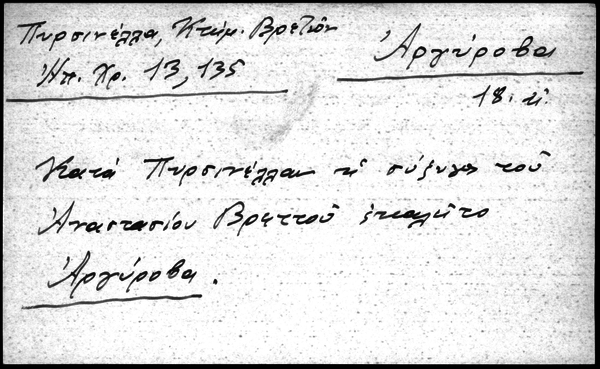 Πυρσινέλλα, Κτημ. Βρεττῶν
Ἠπ. Χρ. 13, 135
Ἀργύροβα
Κατά Πυρσινέλλαν ἡ σύζυγος τοῦ
Ἀναστασίου Βρεττοῦ ἐκαλεῖτο
Ἀργύροβα.